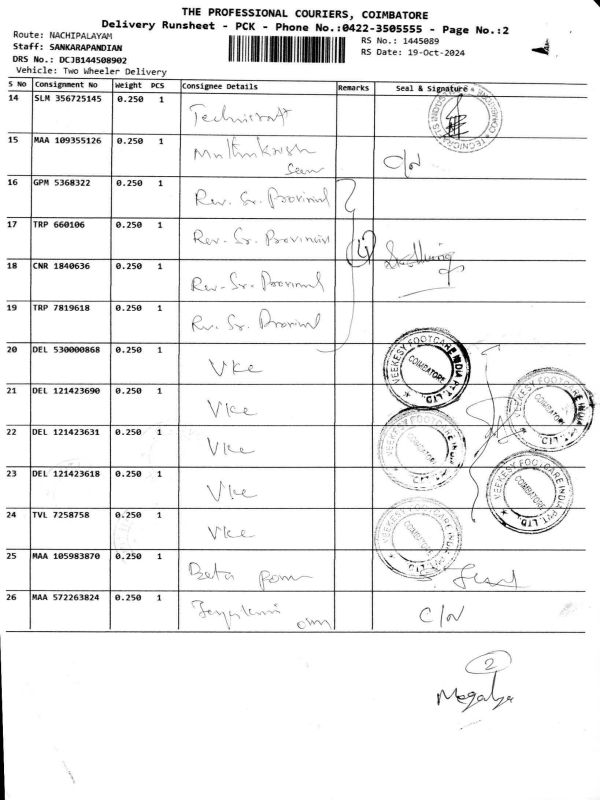 THE PROFESSIONAL COURIERS, COIMBATORE
Delivery Runsheet - PCK - Phone No.:0422-3505555 - Page No.:2
Route: NACHIPALAYAM
RS No.: 1445089
Staff: SANKARAPANDIAN
RS Date: 19-Oct-2024
DRS No.: DCJB144508902
Vehicle: Two Wheeler Delivery
S No Consignment No Weight PCS Consignee Details Remarks Seal & Signature
14 SLM 356725145 0.250 1 Technicraft
15 MAA 109355126 0.250 1 C/N
16 GPM 5368322 0.250 1 Rev. Sr. Provincial
17 TRP 660106 0.250 1 Rev. Sr. Provincial 4
18 CNR 1840636 0.250 1 Rev. Sr. Provincial
19 TRP 7819618 0.250 1 Rev. Sr. Provincial
20 DEL 530000868 0.250 1 Vke VEEKESY FOOTCARE INDIA PVT. LTD. COIMBATORE
21 DEL 121423690 0.250 1 Vke VEEKESY FOOTCARE INDIA PVT. LTD. COIMBATORE
22 DEL 121423631 0.250 1 Vke VEEKESY FOOTCARE INDIA PVT. LTD. COIMBATORE
23 DEL 121423618 0.250 1 Vke VEEKESY FOOTCARE INDIA PVT. LTD. COIMBATORE
24 TVL 7258758 0.250 1 Vke VEEKESY FOOTCARE INDIA PVT. LTD. COIMBATORE
25 MAA 105983870 0.250 1 Beta
26 MAA 572263824 0.250 1 C/N
2